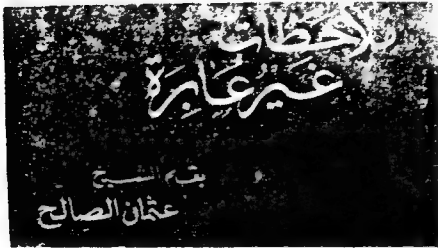 ملاحظات
غَير عَابِرَة
بقلم الشيخ
عثمان الصالح